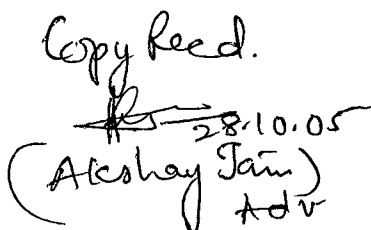 Copy Recd.
28.10.05
(Akshay Jain)
Adv